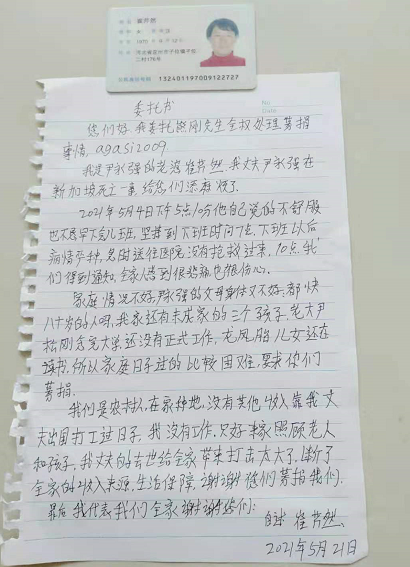 委托书
您们好.我委托 刚先生全权处理募捐
事情, agasi2009
我是尹永强的老婆崔芹然.我丈夫尹永强在
新加坡死亡一事给您们添麻烦了.
2021年5月4日下午5点10分他自己觉的不舒服
也不愿早下会儿班,坚持到下班时间7点.下班以后
病情严重,急时送往医院没有抢救过来,10点我
们得到通知.全家人感到很悲痛也很伤心.
家庭情况不好,尹永强的父母身体又不好,都快
八十岁的人吗,我家还有未成家的三个孩子,老大尹
松刚念完大学还没有正式工作,龙凤胎儿女还在
读书,所以家庭日子过的比较困难,要求你们
募捐.
我们是农村人,在家种地,没有其他收入靠我丈
夫出国打工过日子,我没有工作,只好在家照顾老人
和孩子,我丈夫的去世给全家带来打击太大了,断了
全家的收入来源,生活保障,谢谢您们募捐我们.
最后我代表我们全家谢谢您们:
自述 崔芹然
2021年5月21日
132401197009122727